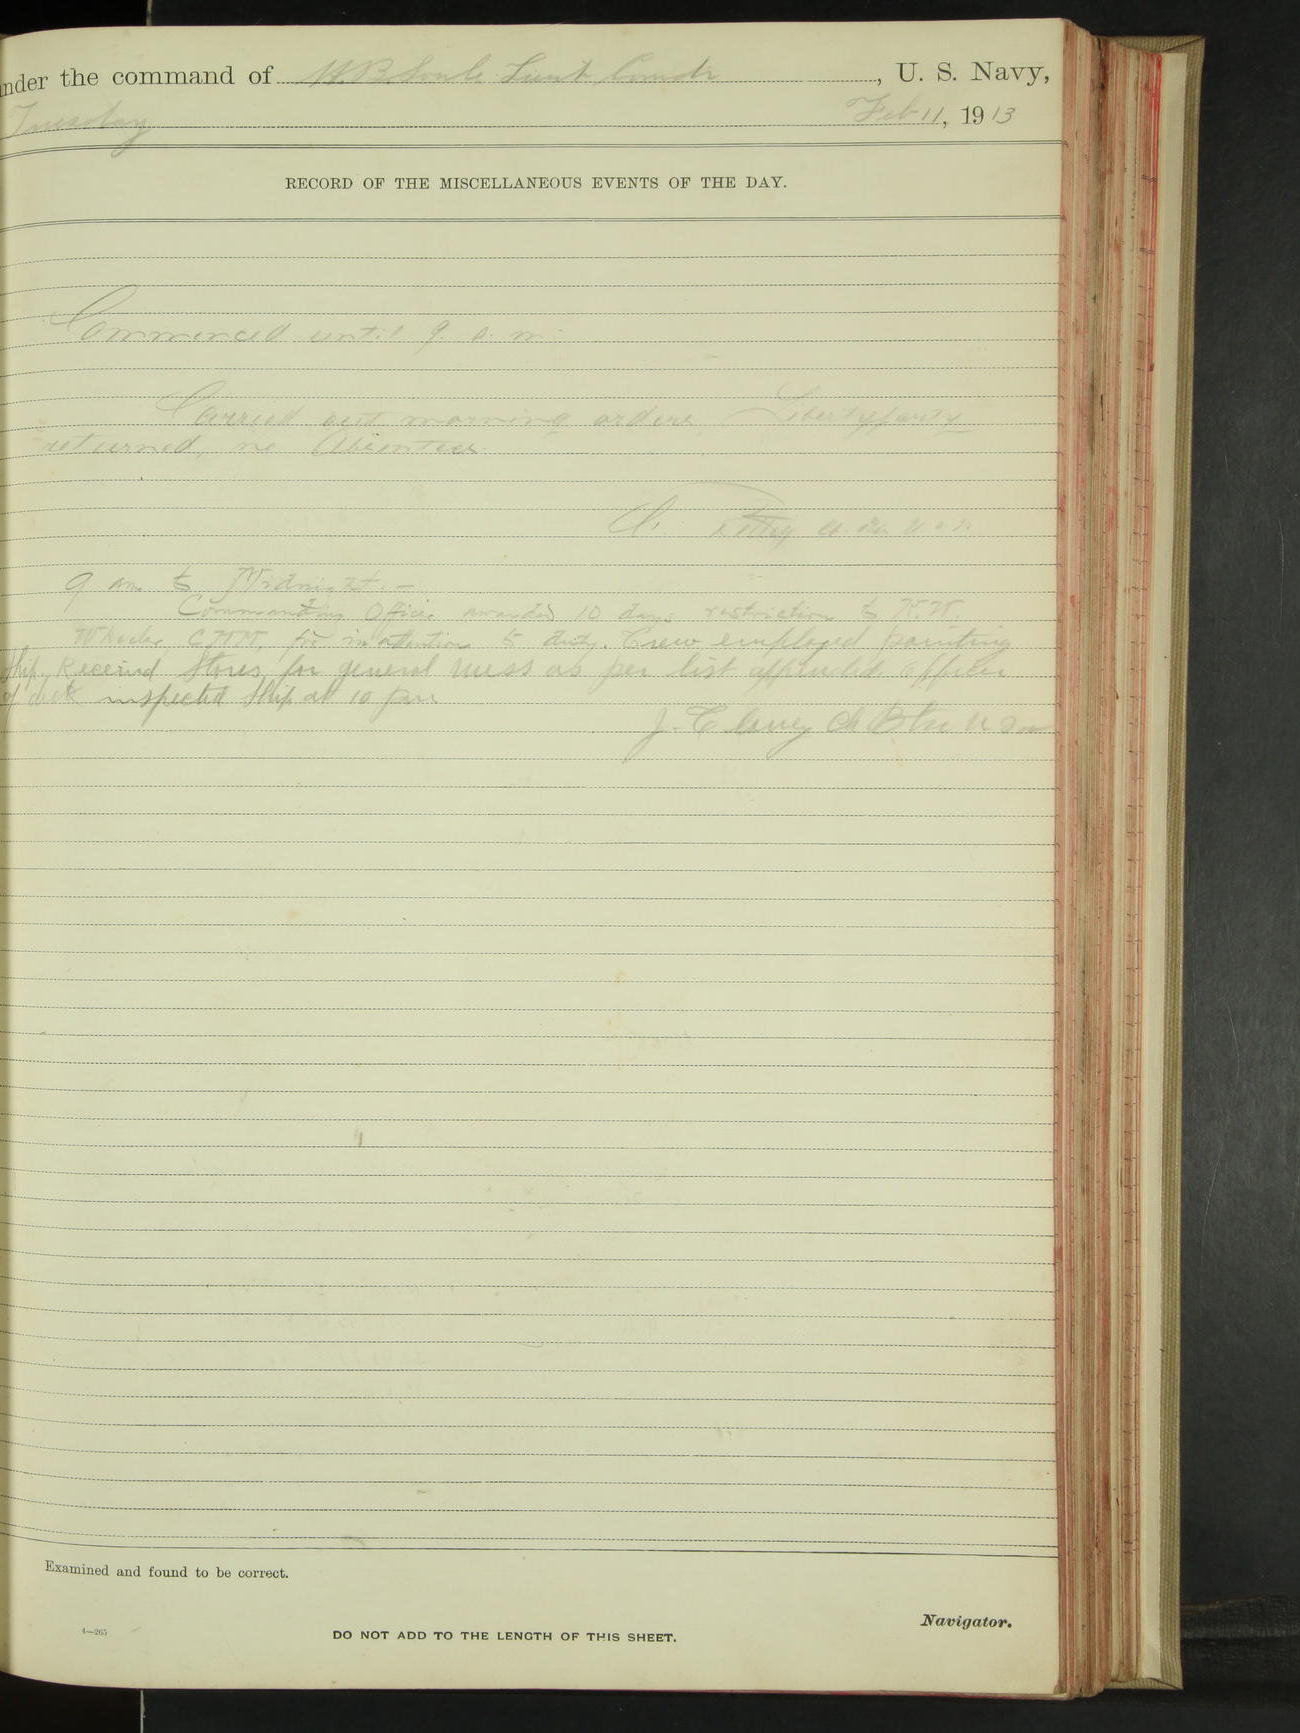 under the command of H B Soule Lieut Comdr, U. S. Navy,
Tuesday Feb 11, 1913
RECORD OF THE MISCELLANEOUS EVENTS OF THE DAY.
Commenced until 9 a. m.
Carried out morning orders. Liberty party
returned, no Absentees.
9 am to Midnight.—
Commanding Officer awarded 10 days restriction to
Wheeler, C.M.M. for inattention to duty. Crew employed painting
ship. Received Stores for general mess as per list appended. officer
of deck inspected Ship at 10 pm
J. Clancy Ch Btn U S N
Examined and found to be correct.
Navigator.
4—265
DO NOT ADD TO THE LENGTH OF THIS SHEET.